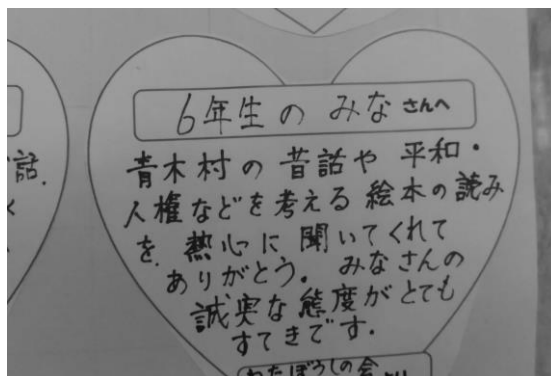 6年生の みな さんへ
青木村の 昔話や 平和・
人権などを考える 絵本の読み
を 熱心に 聞いてくれて
ありがとう。 みなさんの
誠実な態度がとても
すてきです.
わたぼうしの会より
話.